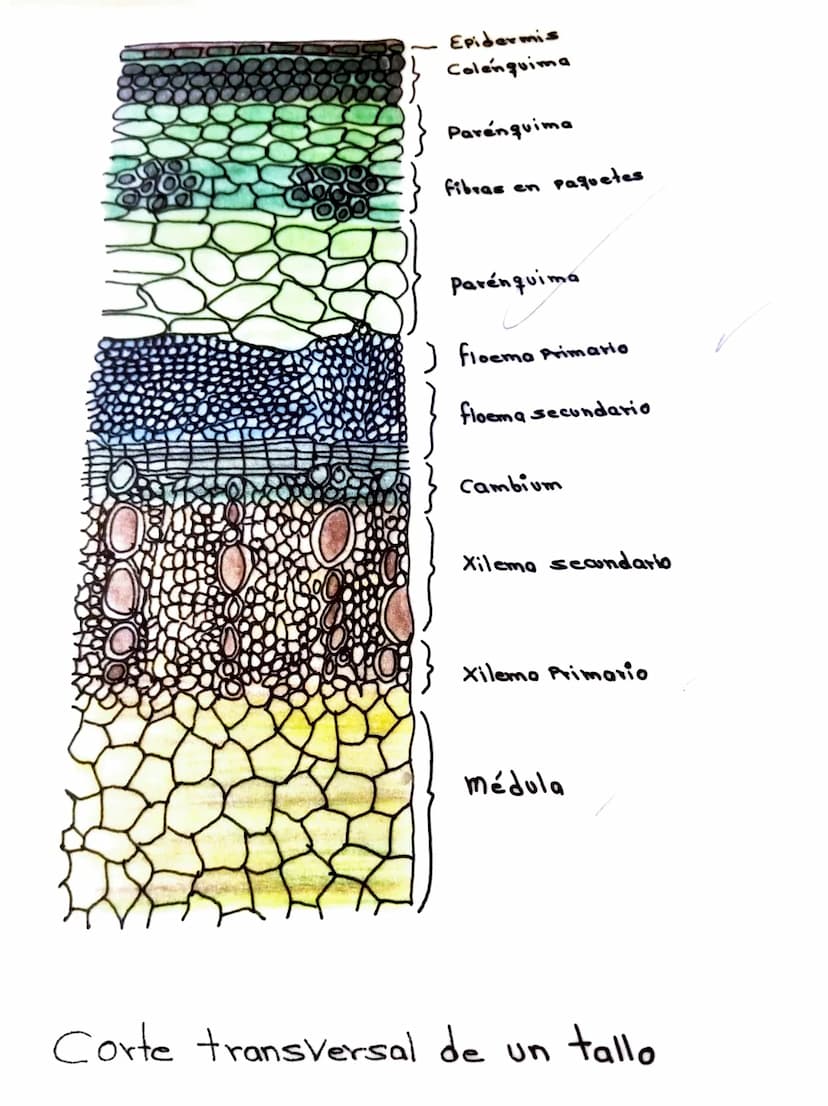 Epidermis
Colénquima
Parénquima
fibras en paquetes
Parénquima
floema Primario
floema secundario
Cambium
Xilema secundario
Xilema Primario
médula
Corte transversal de un tallo